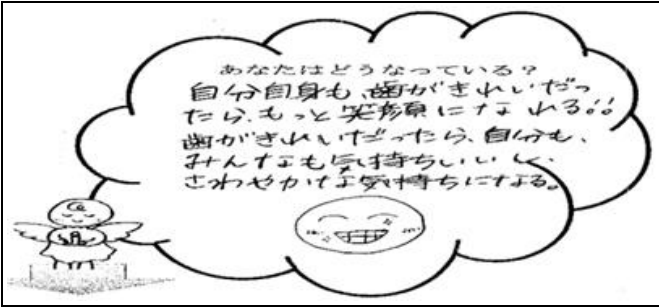 あなたはどうなっている？
自分自身も、歯がきれいだっ
たら、もっと笑顔になれる!!
歯がきれいだったら、自分も、
みんなも気持ちいいし、
さわやかな気持ちになる。